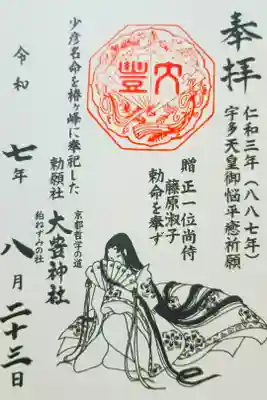 奉拝
仁和三年(八八七年)
宇多天皇御悩平癒祈願
大豊
贈 正一位尚侍
藤原淑子
勅命を奉ず
少彦名命を椿ヶ峰に奉祀した
勅願社
京都哲学の道
大豊神社
狛ねずみの社
令和七年八月二十三日